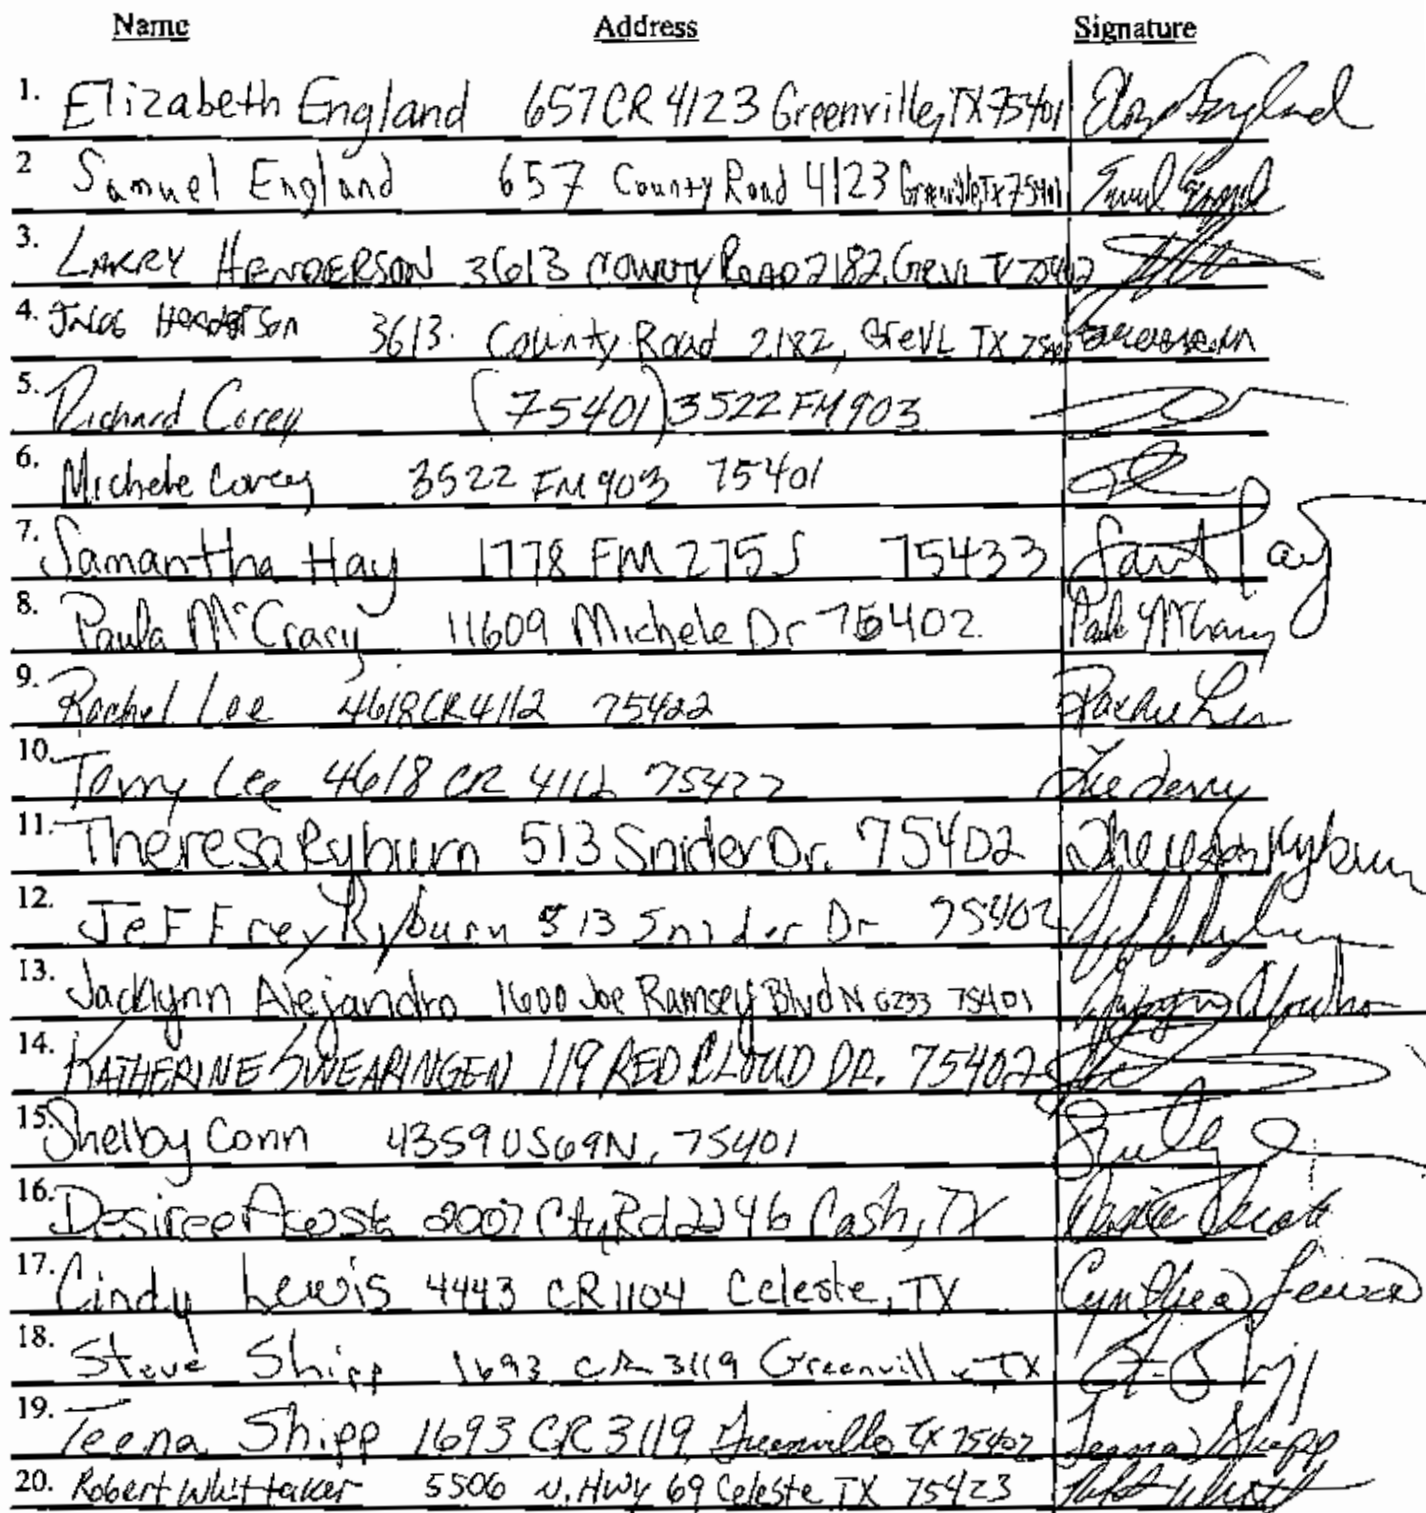 Name Address Signature
1. Elizabeth England 657 CR 4123 Greenville, TX 75401
2 Samuel England 657 County Road 4123 Greenville, TX 75401
3. LARRY HENDERSON 3613 COUNTY ROAD 2182, GREVL TX 75402
4. Henderson 3613. County Road 2182, GreVL TX
5. Richard Corey (75401) 3522 FM 903
6. Michele Corey 3522 FM 903 75401
7. Samantha Hay 1778 FM 275 S 75433
8. Paula McCrary 11609 Michele Dr 75402.
9. Rachel Lee 4618 CR 4112 75422
10. Terry Lee 4618 CR 4112 75422 Lee Terry
11. Theresa Ryburn 513 Snider Dr. 75402 Theresa Ryburn
12. JeFFrey Ryburn 513 Snider Dr 75402
13. Jacklynn Alejandro 1600 Joe Ramsey Blvd N 6233 75401
14. KATHERINE SWEARINGEN 119 RED CLOUD DR. 75402
15. Shelby Conn 4359 US 69 N, 75401
16. Desiree Acosta 2007 Cty Rd 2246 Cash, TX
17. Cindy Lewis 4443 CR 1104 Celeste, TX Cynthia Lewis
18. Steve Shipp 1693 CR 3119 Greenville TX
19. Teena Shipp 1693 CR 3119, Greenville TX 75402 Teena Shipp
20. Robert Whittaker 5506 N. HWY 69 Celeste TX 75423